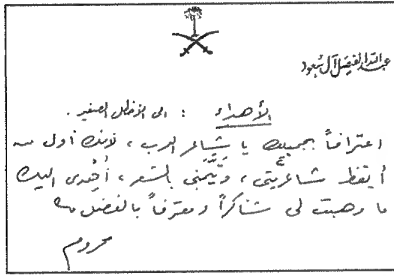 عبدالله الفيصل آل سعود
الأهداء : الى الأخطل الصغير .
اعترافاً بجميلك يا شاعر العرب ، لأنك أول من
أيقظ شاعريتى ، وتيمنى بالشعر ، أُهدى اليك
ما وهبت لى شاكراً ومعترفاً بالفضل منك
محروم